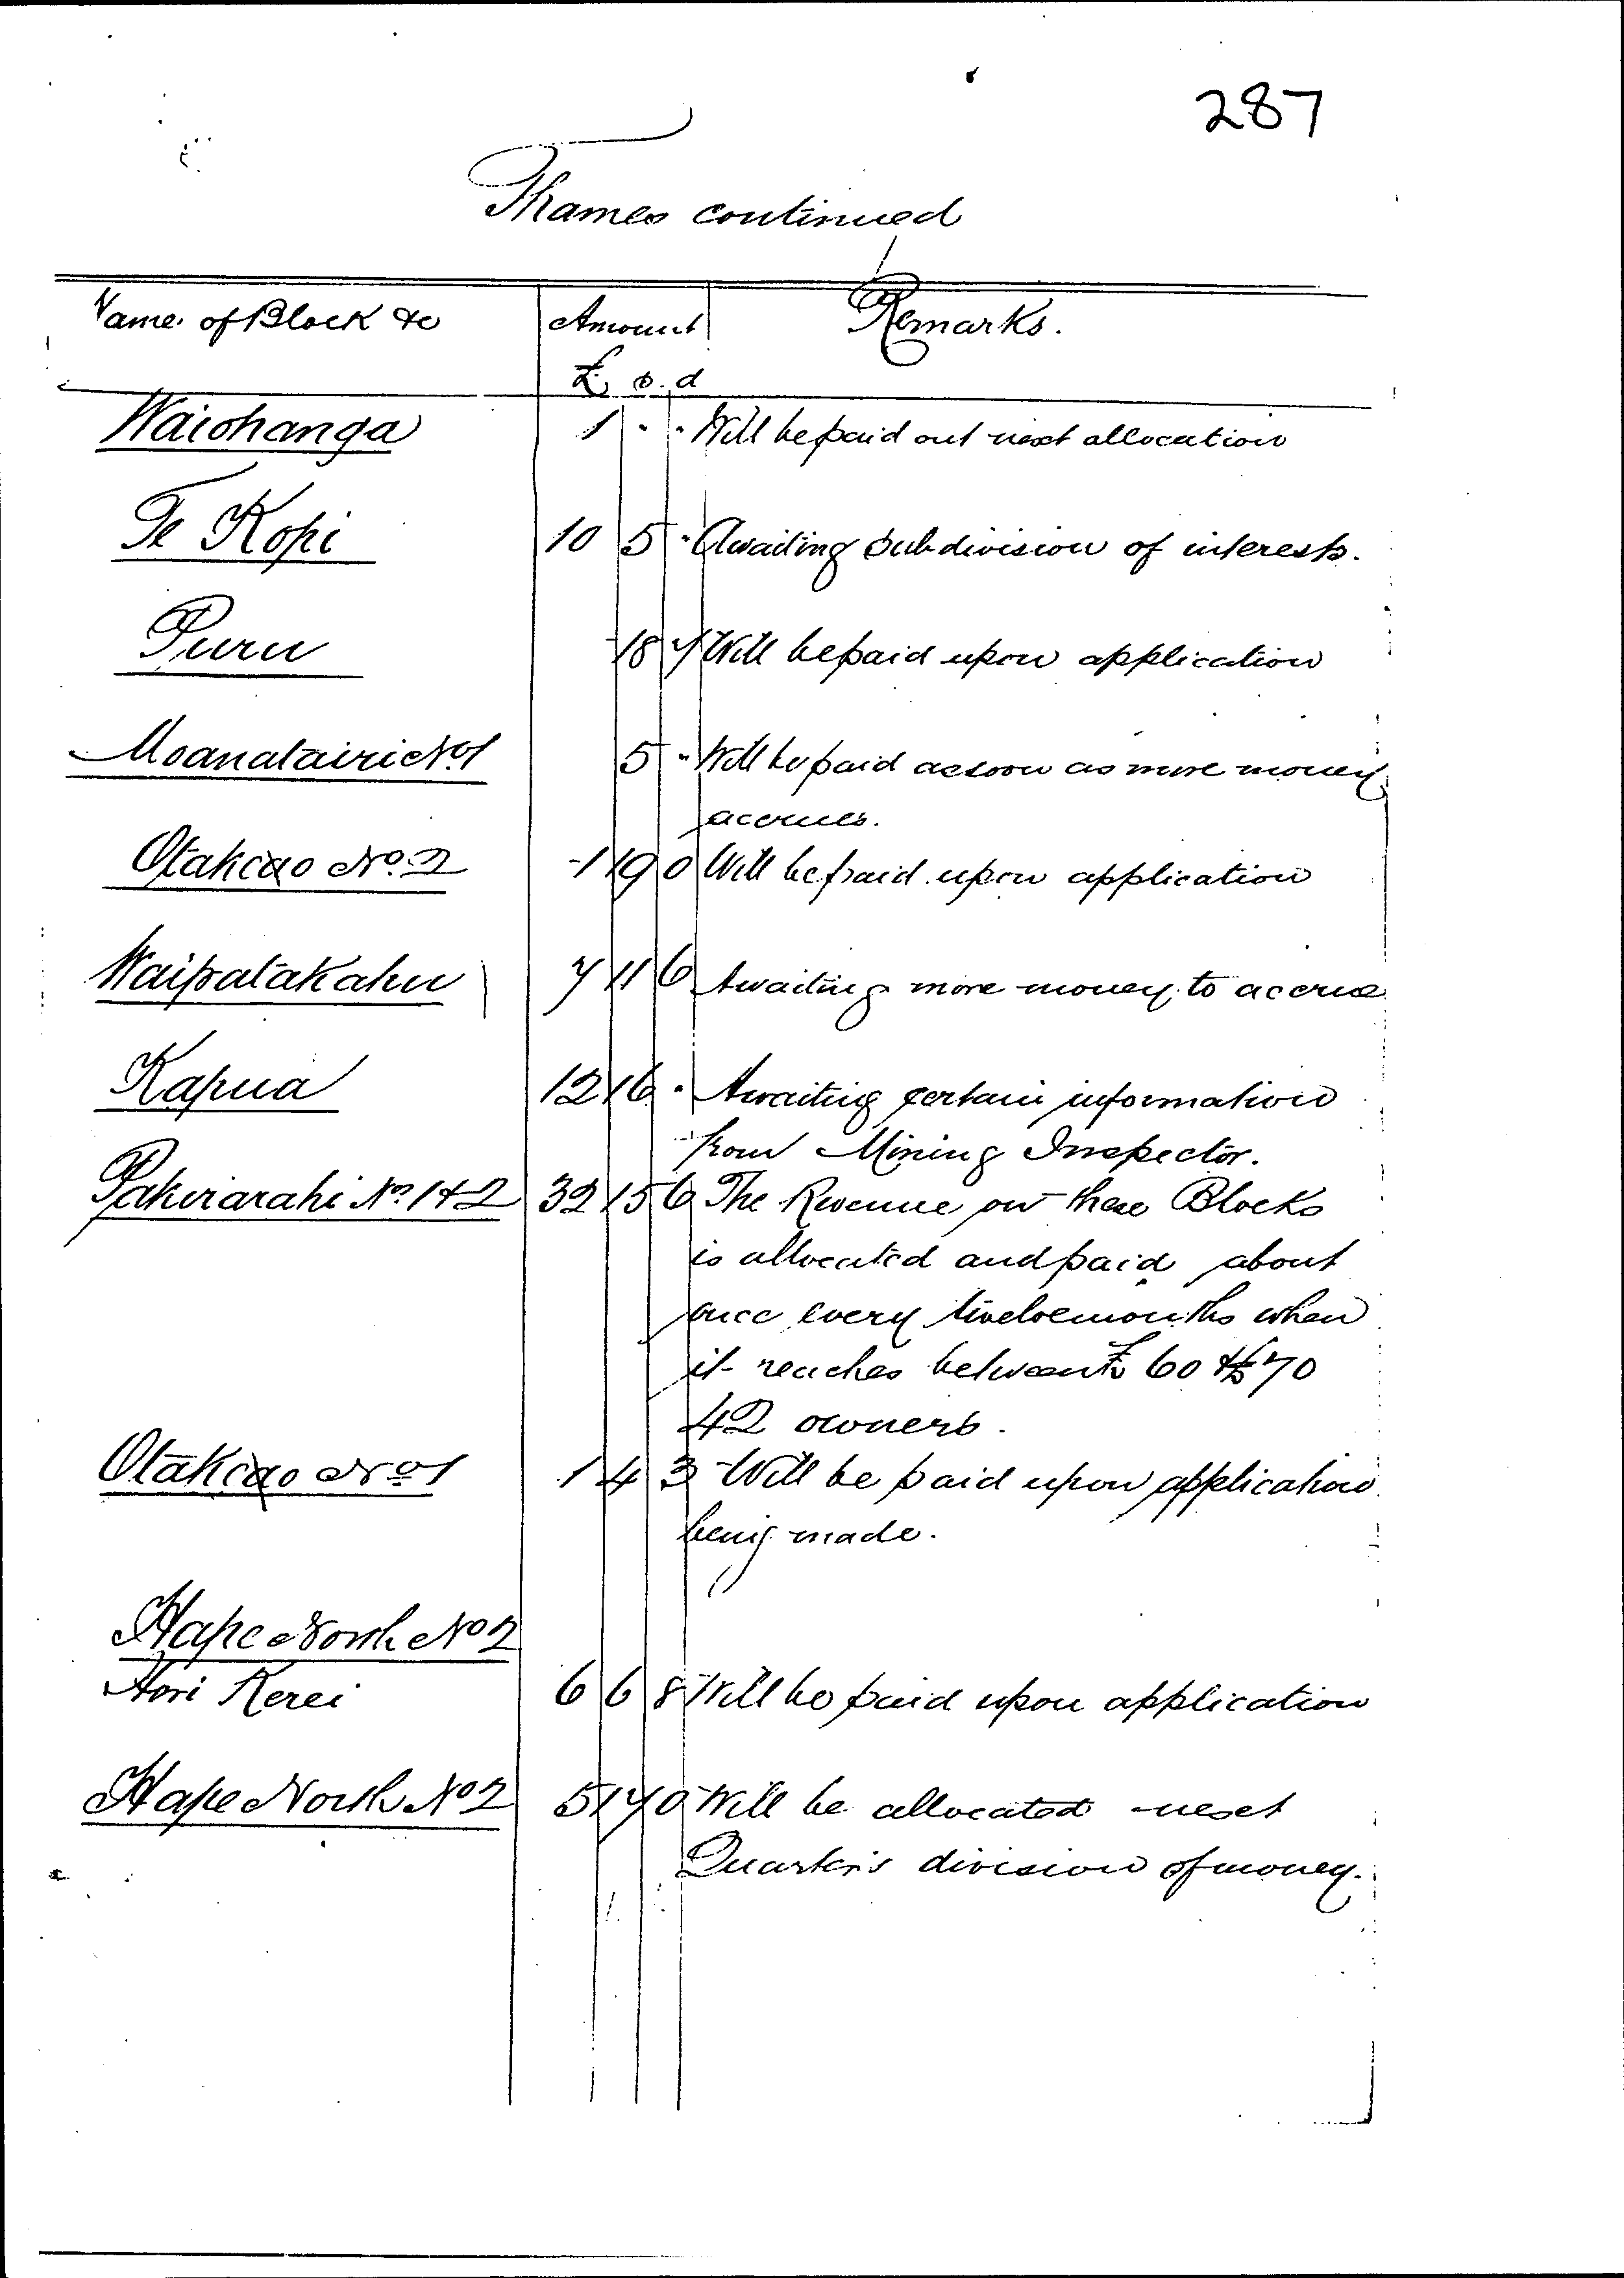 287
Thames continued
Name of Block &c Amount Remarks.
£ s. d
Waiohanga 1 " " Will be paid out next allocation
Te Kopi 10 5 " Awaiting Subdivision of interests.
Puru 18 7 Will be paid upon application
Moanatairi No 1 5 " Will be paid as soon as more money
accrues.
Otakeao No. 2 1 19 0 Will be paid upon application
Waipatakahu 7 11 6 Awaiting more money to accrue
Kapua 12 16 " Awaiting certain information
from Mining Inspector.
Pakirarahi No. 1 & 2 32 15 6 The Revenue on these Blocks
is allocated and paid about
once every twelve months when
it reaches between £60 & £70
42 owners.
Otakeao No 1 1 4 3 Will be paid upon application
being made.
Hape North No 2
Hori Kerei 6 6 8 Will be paid upon application
Hape North No 2 5 17 0 Will be allocated next
Quarter's division of money.